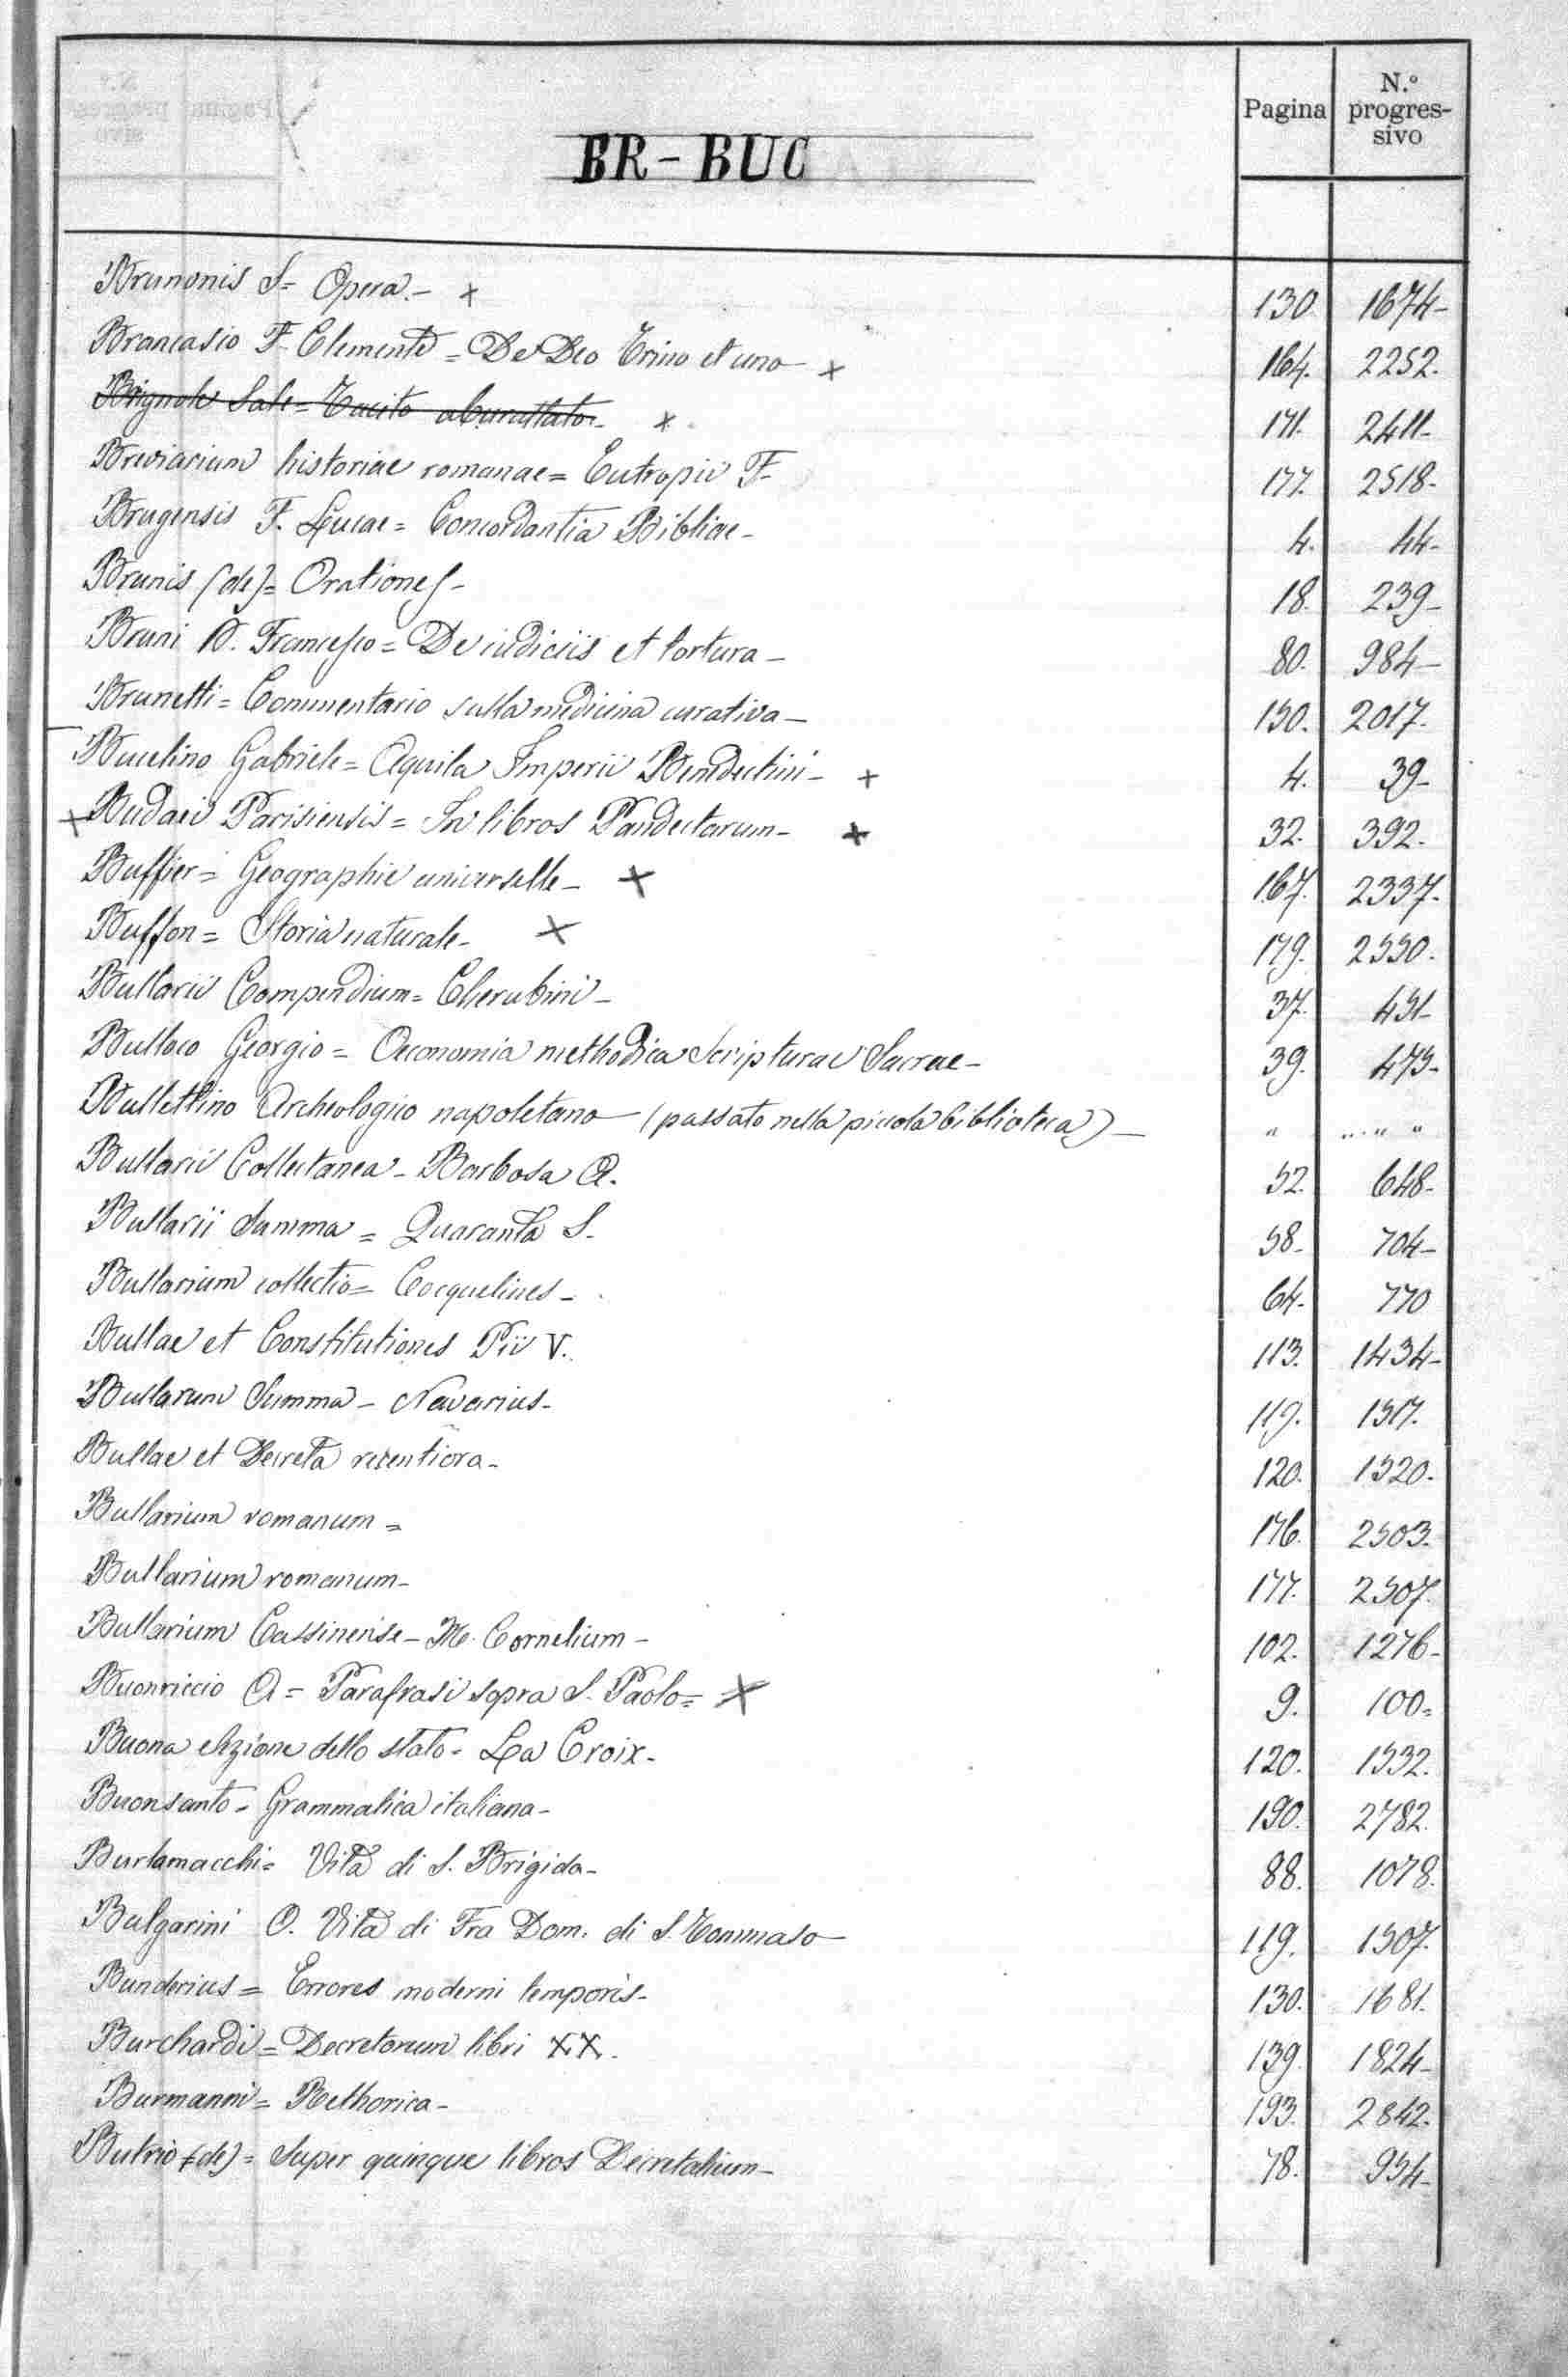 Pagina N.º progres-sivo
BR - BUC
Brunonis S= Opera.- x 130. 1674-
Brancasio F. Clemente = De Deo Trino et uno x 164. 2252.
Brignole Sale = Tacito aburattato- x 171. 2411-
Breviarium historiae romanae = Eutropii F- 177. 2518-
Brugensis F. Lucae = Concordantia Bibliae- 4. 44-
Brunis (de) = Orationes- 18. 239-
Bruni D. Francesco = De iudiciis et tortura- 80. 984-
Brunetti = Commentario sulla medicina curativa- 150. 2017.
Bucelino Gabriele = Aquila Imperii Benedectini- + 4. 39-
x Budaei Parisiensis = In libros Pandectarum- x 32. 392.
Buffier = Geographie universelle- x 167. 2337.
Buffon = Storia naturale- x 179. 2550.
Bullarii Compendium = Cherubini- 37. 451-
Bulloco Georgio = Oeconomia methodica Scripturae Sacrae- 39. 473-
Bullettino Archeologico napoletano (passato nella piccola biblioteca)- " " " "
Bullarii Collectanea - Barbosa A. 52. 648-
Bullarii Summa = Quaranta S. 58- 704-
Bullarium collectio = Cocquelines- 64- 770
Bullae et Constitutiones Pii V. 113. 1434-
Bullarum Summa - Navarius- 119. 1517.
Bullae et Decreta recentiora- 120. 1520.
Bullarium romanum = 176. 2503.
Bullarium romanum- 177. 2507.
Bullarium Cassinense - M. Cornelium- 102. 1276-
Buonriccio A = Parafrasi sopra S. Paolo = x 9. 100=
Buona elezione dello stato = La Croix- 120. 1532.
Buonsanto - Grammatica italiana- 190. 2782.
Burlamacchi = Vita di S. Brigida- 88. 1078.
Bulgarini O. Vita di Fra Dom. di S. Tommaso 119. 1507.
Bunderius = Errores moderni temporis- 130. 1681.
Burchardi = Decretorum libri XX. 139. 1824-
Burmanni = Rethorica- 193. 2842.
Butrio (de) = Super quinque libros Decretalium- 78. 954-